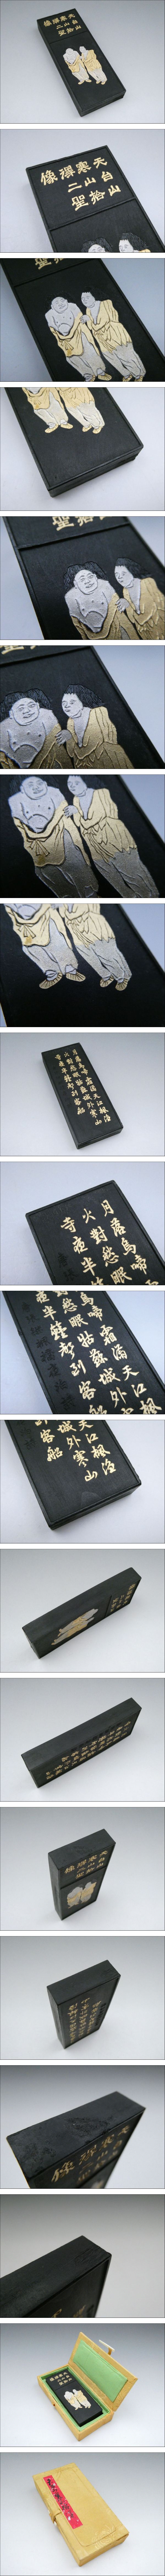 天台山
寒山拾
得二聖
像
月落烏啼霜滿天江楓漁
火對愁眠姑蘇城外寒山
寺夜半鐘聲到客船